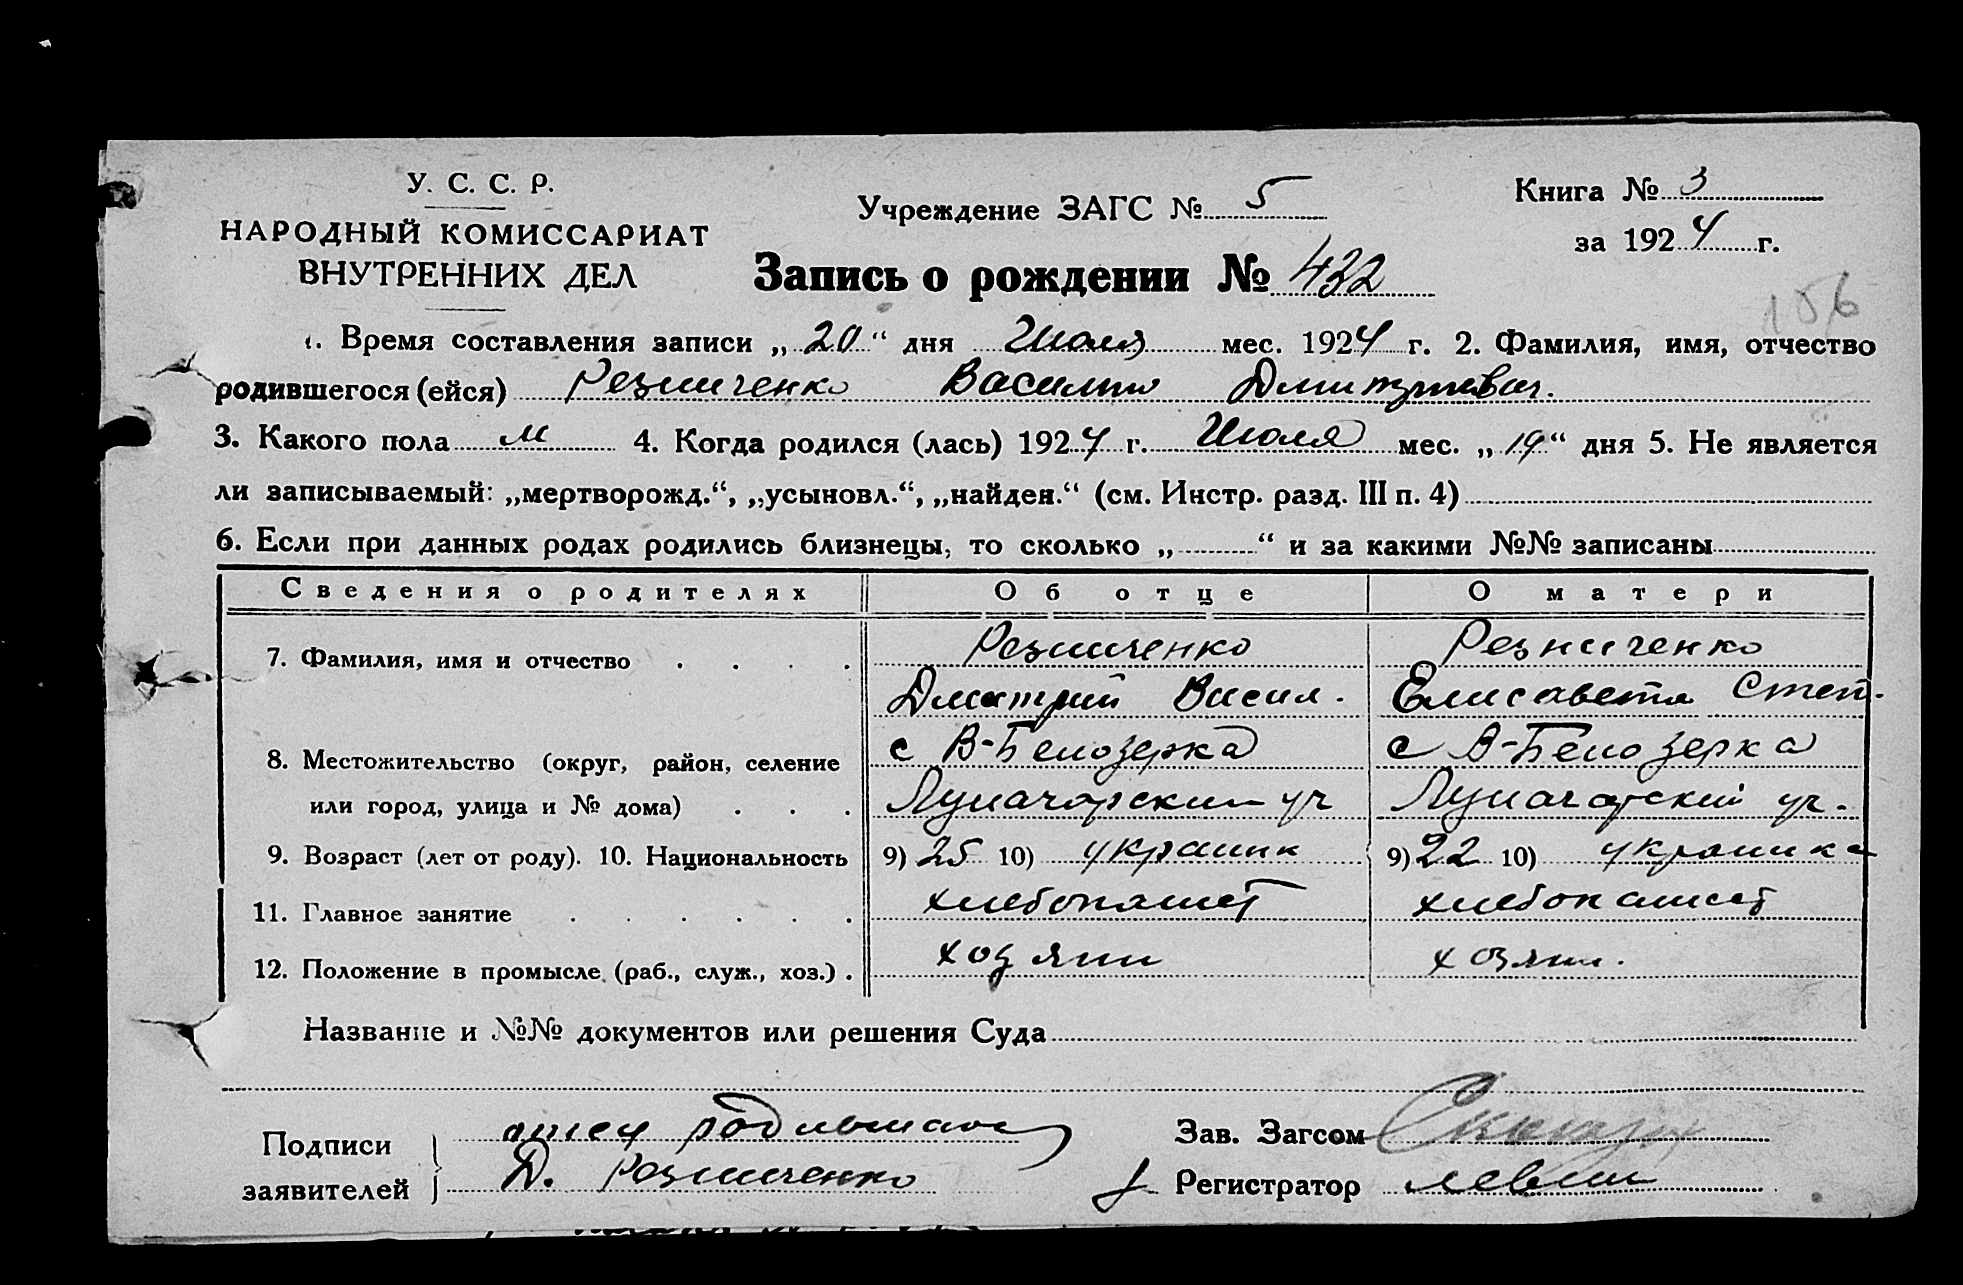 У. С. С. Р.
НАРОДНЫЙ КОМИССАРИАТ
ВНУТРЕННИХ ДЕЛ
Учреждение ЗАГС № 5
Книга № 3
за 1924 г.
Запись о рождении № 432
156
1. Время составления записи „20“ дня Июля мес. 1924 г. 2. Фамилия, имя, отчество
родившегося (ейся) Резниченко Василий Дмитриевич.
3. Какого пола м 4. Когда родился (лась) 1924 г. Июля мес. „19“ дня 5. Не является
ли записываемый: „мертворожд.“, „усыновл.“, „найден.“ (см. Инстр. разд. III п. 4)
6. Если при данных родах родились близнецы, то сколько „ “ и за какими №№ записаны
Сведения о родителях Об отце О матери
7. Фамилия, имя и отчество Резниченко Резниченко
Дмитрий Васил. Елисавета Степ.
8. Местожительство (округ, район, селение с В-Белозерка с В-Белозерка
или город, улица и № дома) Луначарский уч Луначарский уч.
9. Возраст (лет от роду). 10. Национальность 9) 25 10) украинк 9) 22 10) украинка
11. Главное занятие хлебопашест хлебопашест
12. Положение в промысле (раб., служ., хоз.) хозяин хозяин.
Название и №№ документов или решения Суда
Подписи отец
заявителей Д. Резниченко
Зав. Загсом
Регистратор Левин